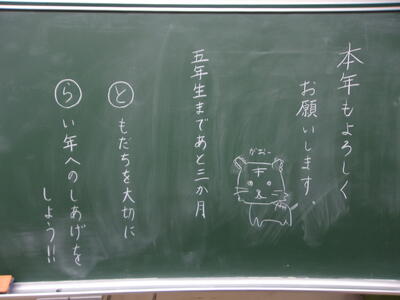 本年もよろしく
お願いします。
がおー
五年生まであと三か月
と もだちを大切に
ら い年へのしあげを
しよう!!